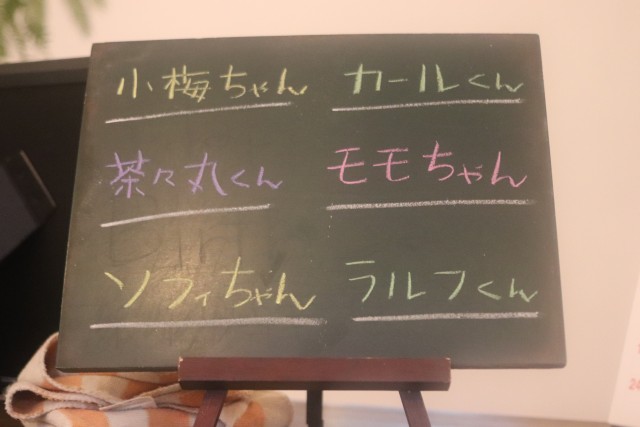 小梅ちゃん
カールくん
茶々丸くん
モモちゃん
ソフィちゃん
ラルフくん